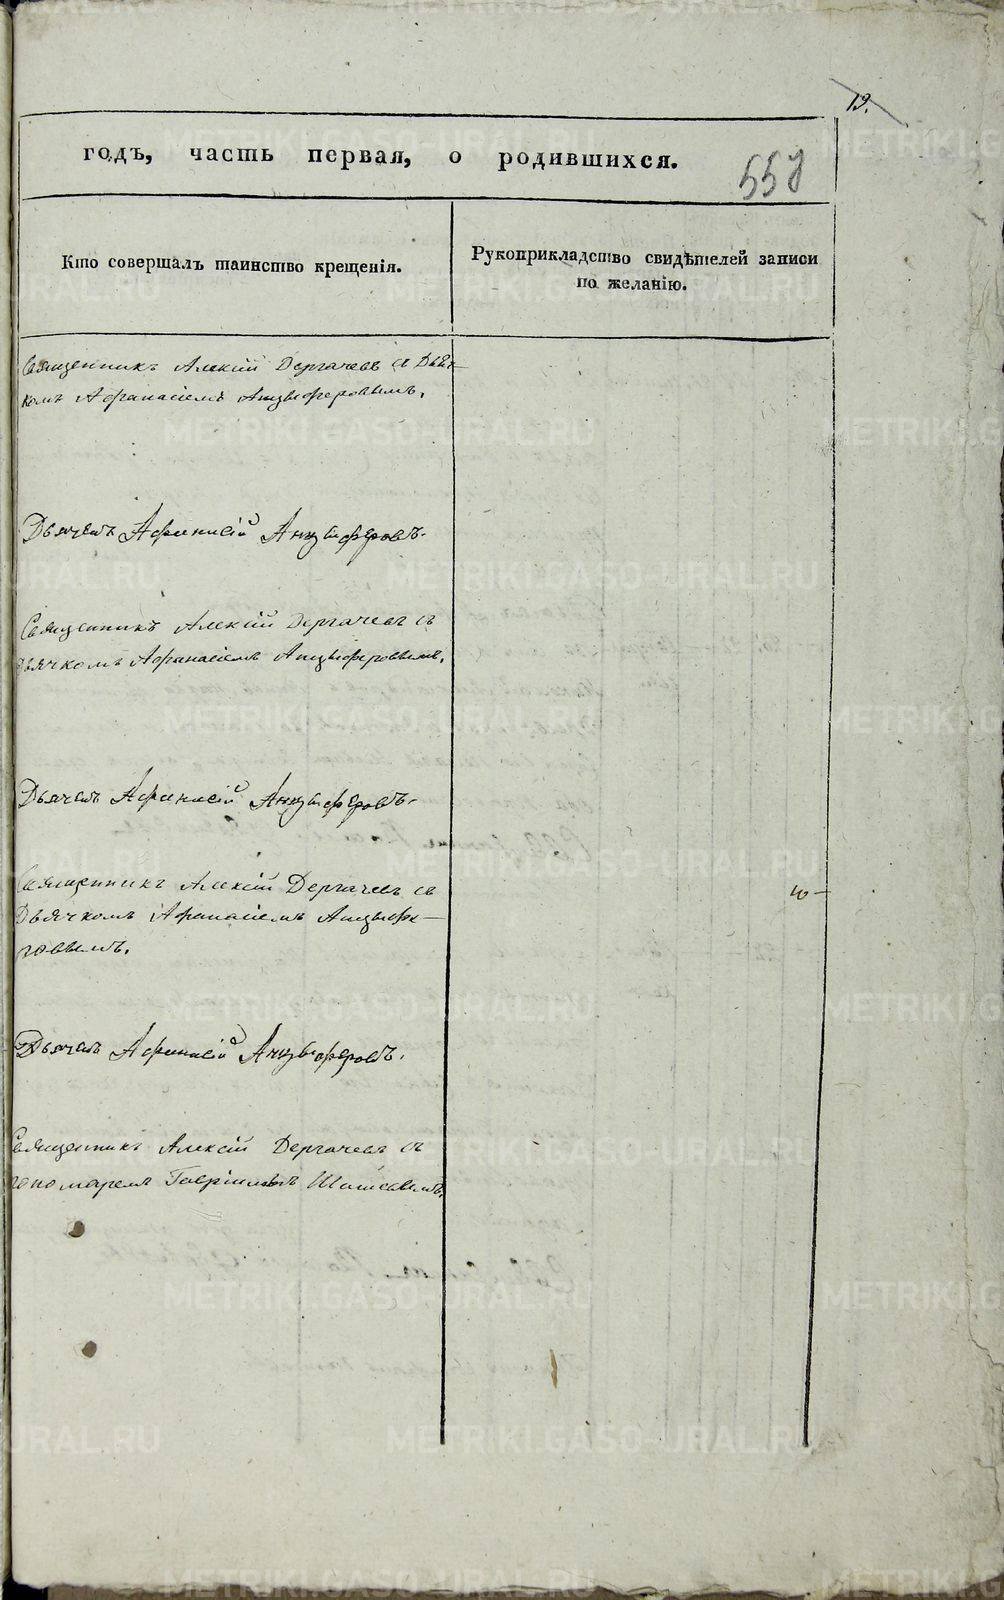 19.
годъ, часть первая, о родившихся.
559
Кто совершалъ таинство крещенія.
Рукоприкладство свидѣтелей записи
по желанію.
Священникъ Алексій Дергачевъ съ Дьяч-
комъ Афанасіемъ Анцыферовымъ.
Дьячекъ Афанасій Анцыферовъ.
Священникъ Алексій Дергачевъ съ
дьячкомъ Афанасіемъ Анцыферовымъ.
Дьячекъ Афанасій Анцыферовъ.
Священникъ Алексій Дергачевъ съ
Дьячкомъ Афанасіемъ Анцыфе-
ровымъ.
Дьячекъ Афанасій Анцыферовъ.
Священникъ Алексій Дергачевъ съ
пономаремъ Гавріиломъ
METRIKI.GASO-URAL.RU